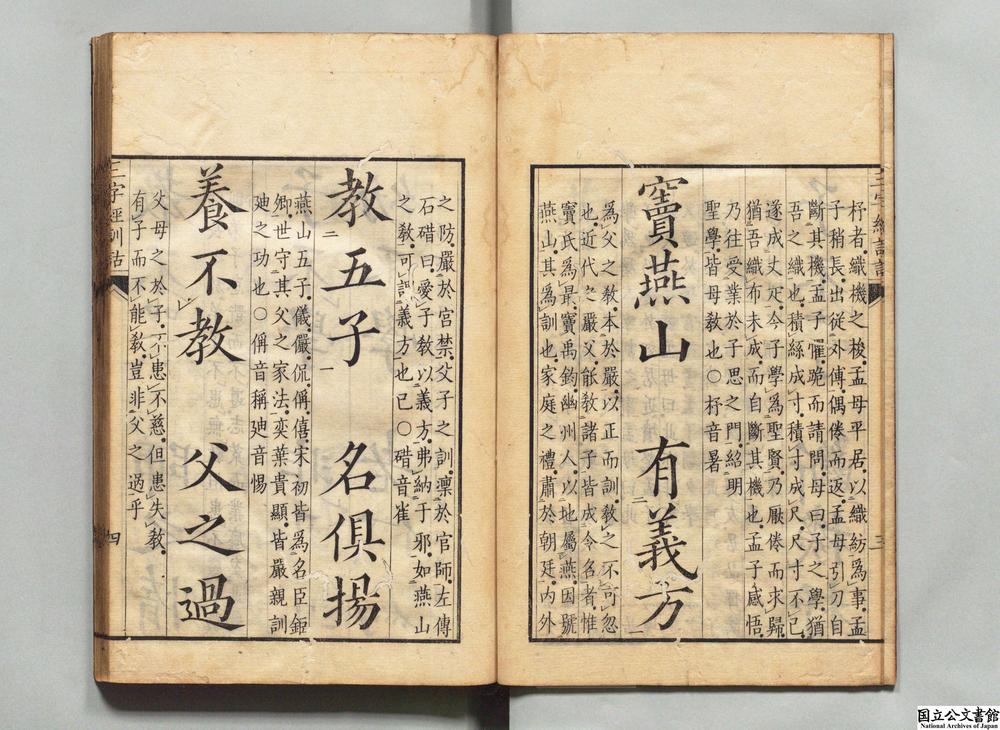 三字經訓詁
三
杼者。織機之梭。孟母平居。以織紡爲事。孟
子稍長。出從外傅。偶倦而返。孟母引刀自
斷其機。孟子懼。跪而請問。母曰。子之學。猶
吾之織也。積絲成寸。積寸成尺。尺寸不已。
遂成丈疋。今子學爲聖賢。乃厭倦而求歸。
猶吾織布未成。而自斷其機也。孟子感悟。
乃往受業於子思之門。紹明
聖學。皆母敎也○杼音暑
竇燕山 有義方
爲父之敎。本於嚴。以正而訓。敎之不可忽
也。近代之嚴父。能敎諸子。皆成令名者。惟
竇氏爲最。竇禹鈞。幽州人。以地屬燕。因號
燕山。其爲訓也。家庭之禮。肅於朝廷。內外
之防。嚴於宮禁。父子之訓。凜於官師。左傳
石碏曰。愛子敎以義方。弗納于邪。如燕山
之敎。可謂義方也已○碏音雀
教五子 名俱揚
燕山五子。儀。儼。侃。偁。僖。宋初皆爲名臣鉅
卿。世守其父之家法。奕葉貴顯。皆嚴親訓
廸之功也○偁音稱廸音惕
養不教 父之過
父母之於子。不患不慈。但患失敎。
有子而不能敎。豈非父之過乎
三字經訓詁
四
国立公文書館
National Archives of Japan